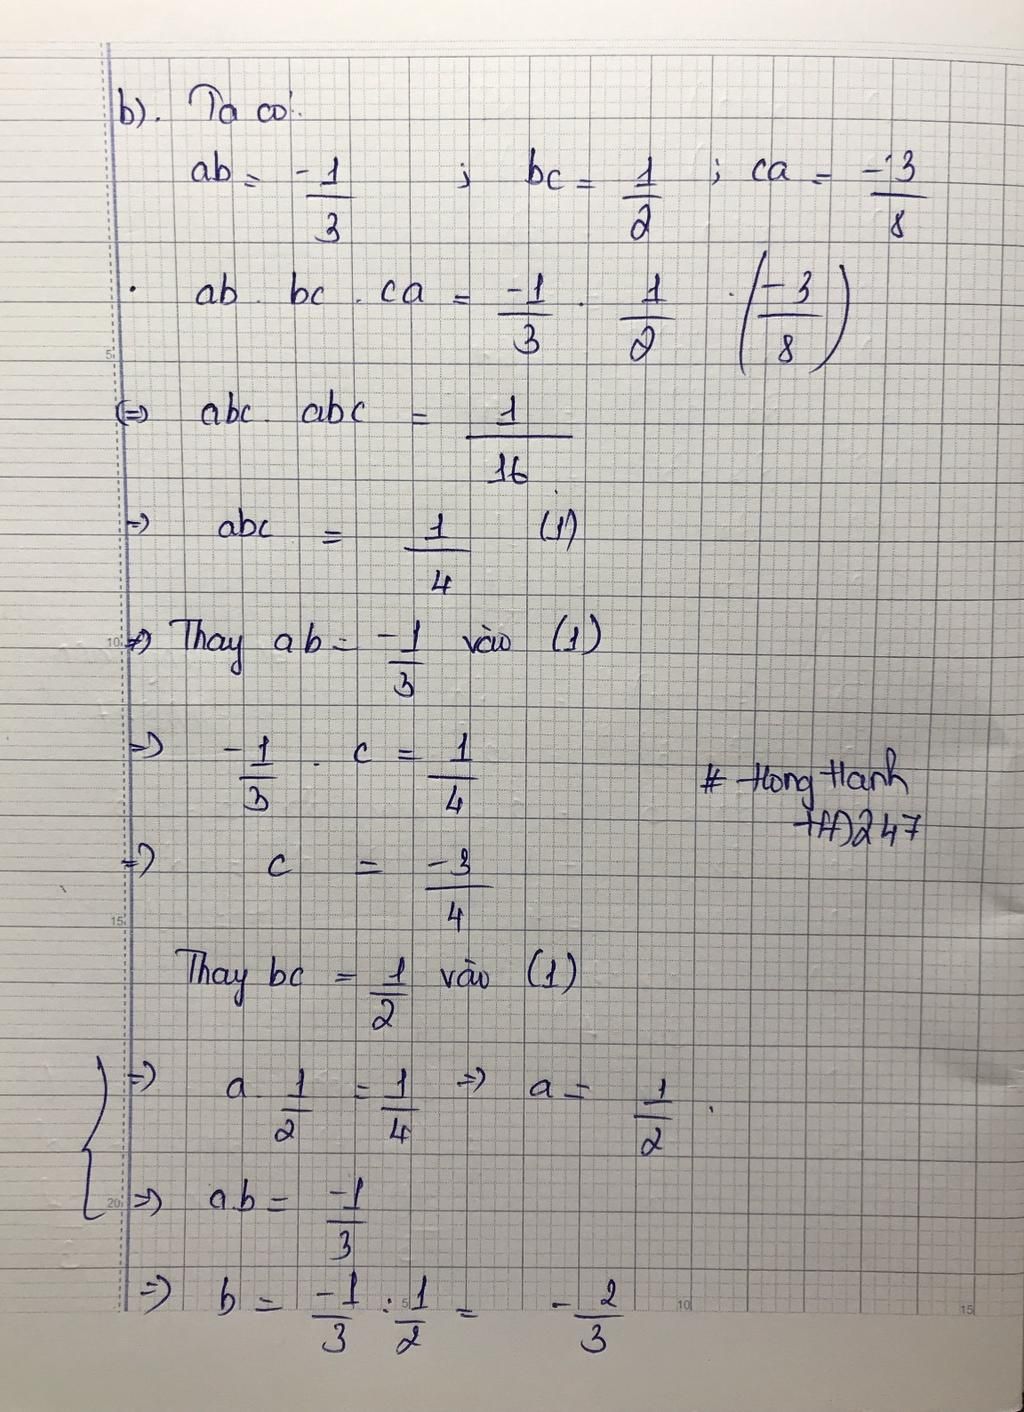 b). Ta có:
ab = -1/3 ; bc = 1/2 ; ca = -3/8
. ab . bc . ca = -1/3 . 1/2 . (-3/8)
(=) abc . abc = 1/16
=) abc = 1/4 (1)
=) Thay ab = -1/3 vào (1)
=) -1/3 . c = 1/4
# Hong Hanh
HĐ247
=) c = -3/4
Thay bc = 1/2 vào (1)
=) a . 1/2 = 1/4 =) a = 1/2 .
=) a.b = -1/3
=) b = -1/3 : 1/2 = -2/3
5
10
15
20
5
10
15